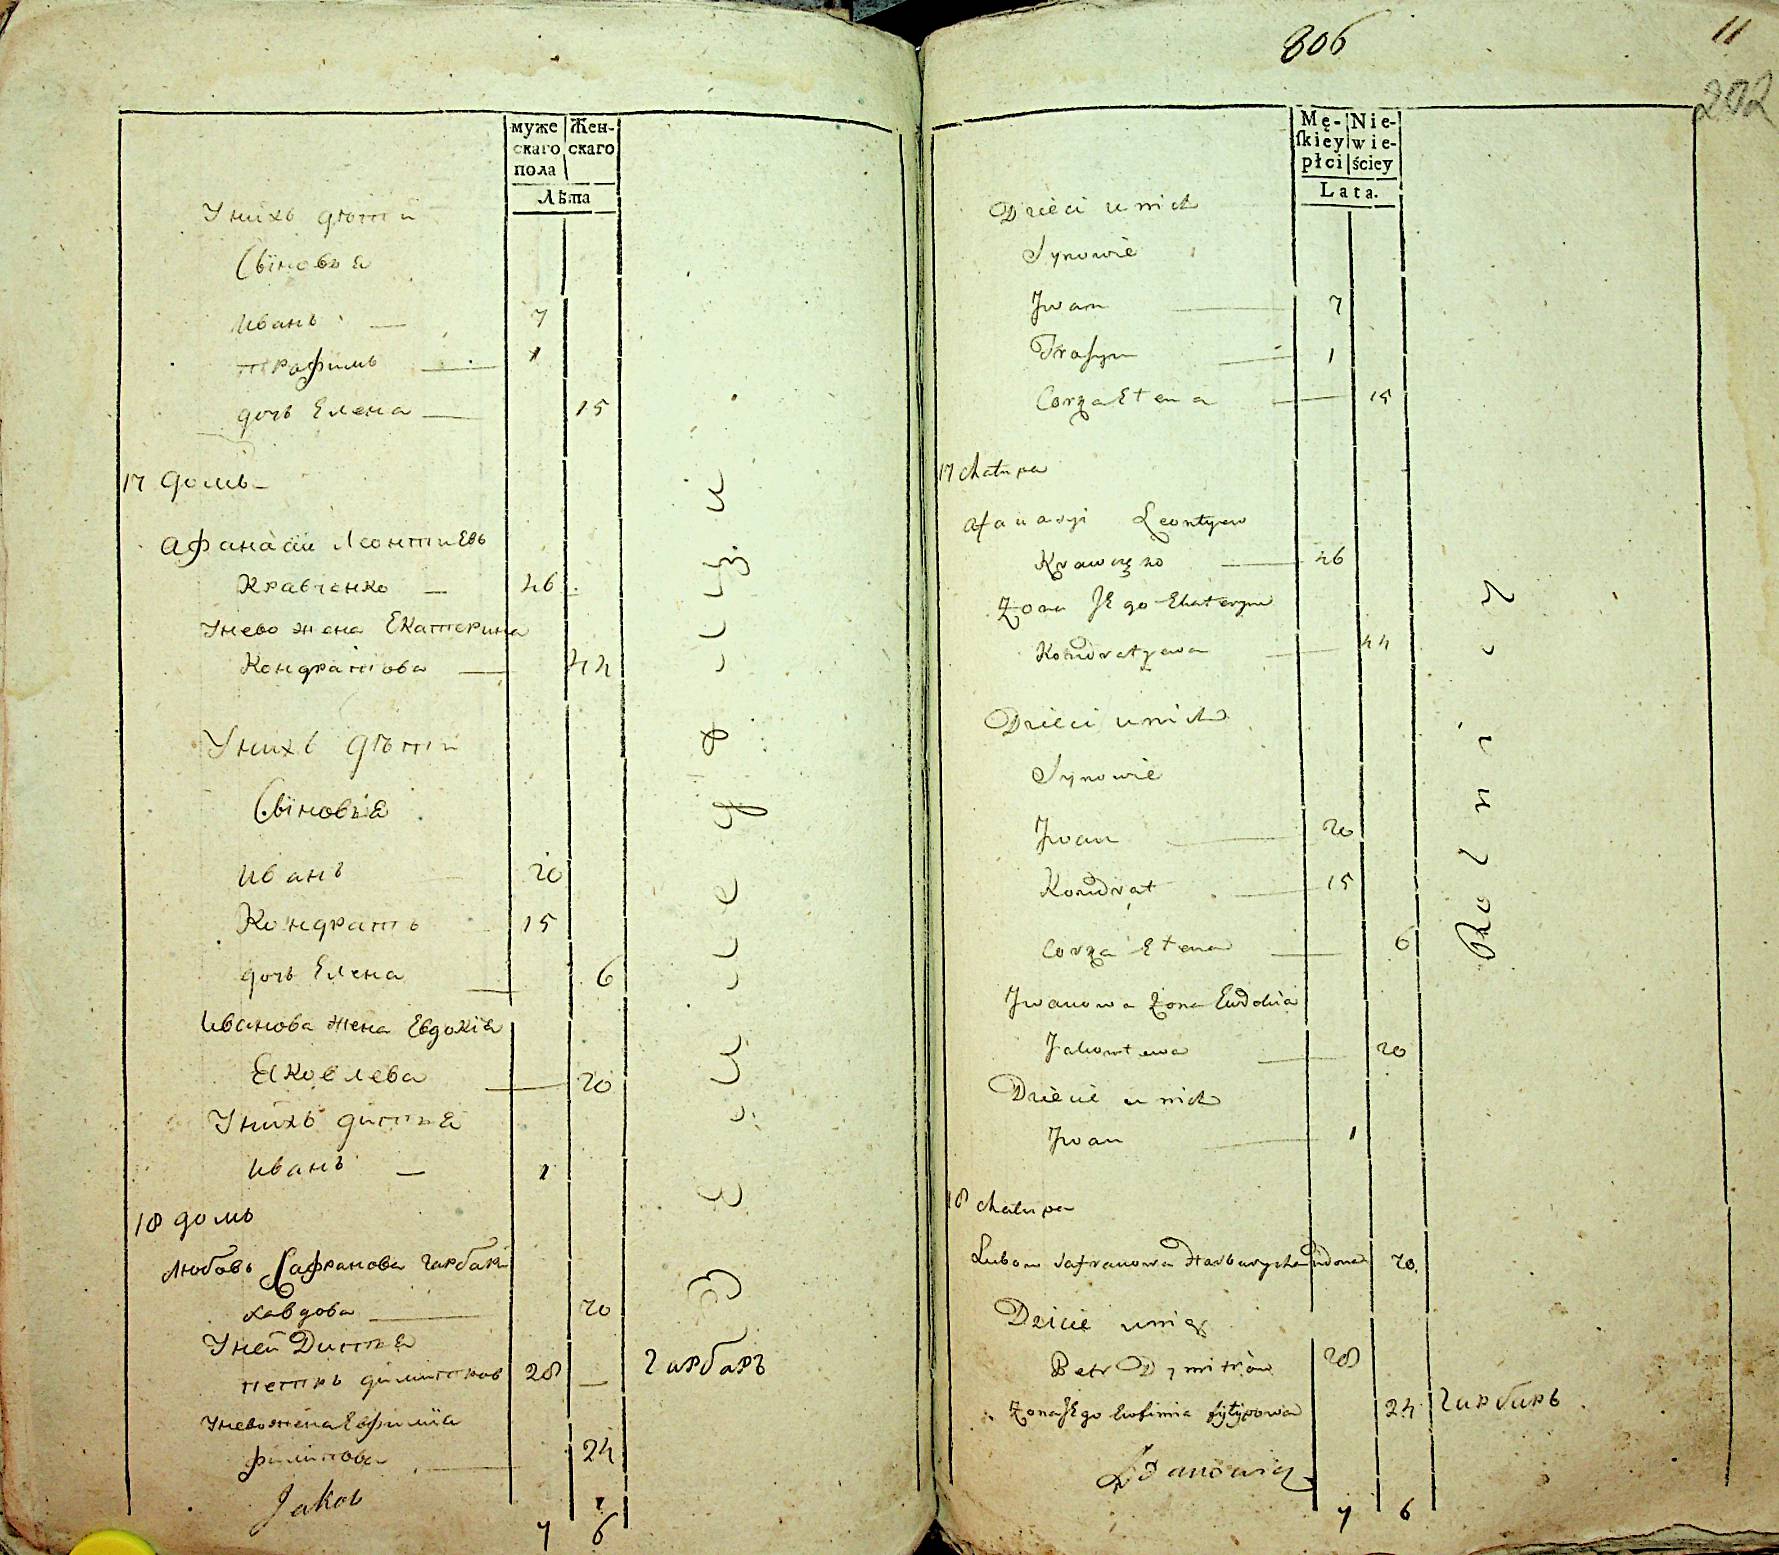 муже
скаго
пола
Жен-
скаго
Лѣта
Унихъ дѣти
Свіновья
Иванъ — 7
трафимъ — 1
дочь Елена — 15
17 домъ
Афанасій Леонтиевъ
Кравченко — 46
Унево жена Екатерина
Кондратова — 44
Унихъ дѣти
Свіновья
Иванъ 20
Кондратъ 15
дочь Елена — 6
Иванова жена Евдокія
Яковлева — 20
Унихъ дитя
Иванъ — 1
18 домъ
Любовь Сафранова гарбари
ха вдова — 70
Уней Дитя
петръ димитровъ 28 — гарбаръ
Унево жена Ефимія
филипова — 24
Jakob
7 6
806
11
202
Mę-
ſkiey
płci
Nie-
wie-
ściey
Lata.
Dzieci u nich
Synowie
Jwan — 7
Trafym — 1
Corka Elena — 15
17 chałupa
Afanasyi Leontyew
Krawczenko — 46
Żona Jego Ekateryna
Kondratyewa — 44
Dzieci u nich
Synowie
Jwan — 20
Kondrat — 15
Corka Elena — 6
Jwanowa Żona Ewdokia
Jakowlewa — 20
Dziecie u nich
Jwan — 1
Rolnicy
18 chałupa
Lubow Safranowa Harbarycha wdowa 70
Dziecie u niey
Petr Dymitrów 28
Żona Jego Eufimia Fylypowa 24 гарбарь
7 6